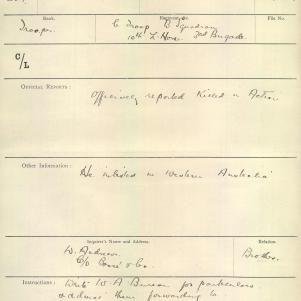 Rank.
Regiment, &c.
File No.
Trooper
C Troop B Squadron
10th L. Horse 3rd Brigade
C/L
OFFICIAL REPORTS:
Officially reported Killed in Action
Other Information:
He enlisted in Western Australia
Inquirer's Name and Address.
Relation.
W. Andrews
Brother.
C/o & Co.
Instructions:
Write W. A Bureau for particulars
address them forwarding to